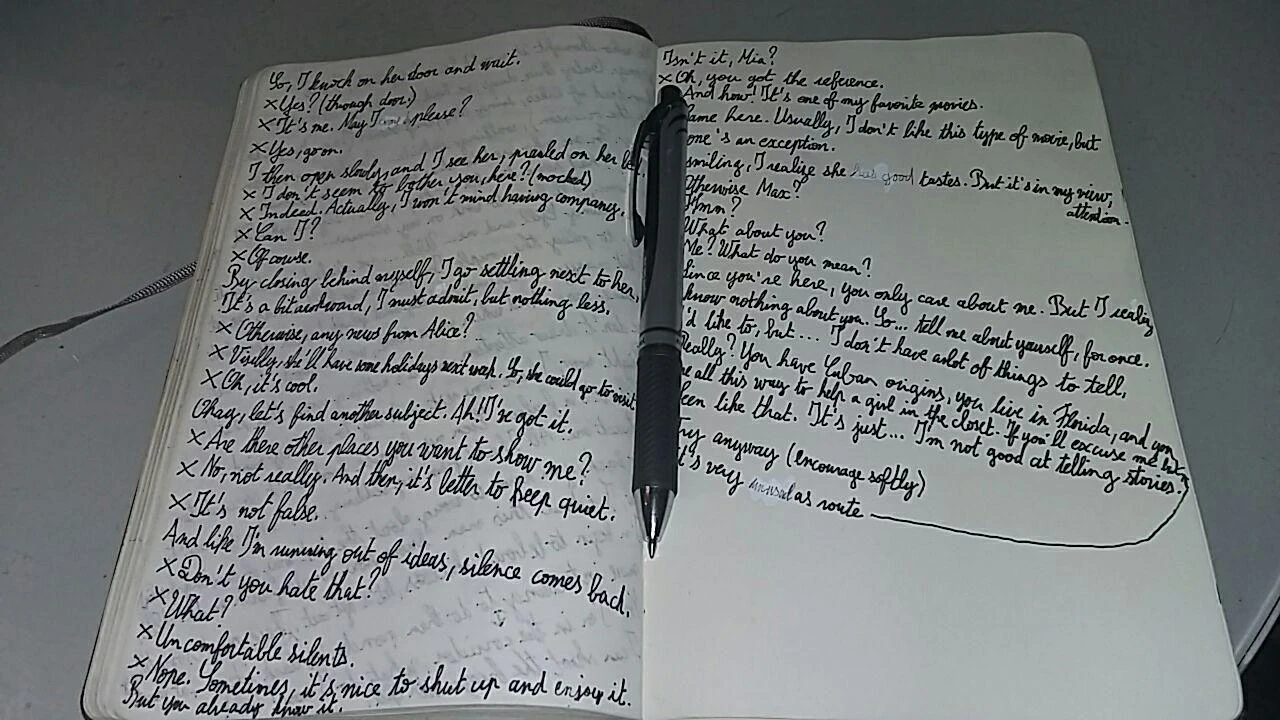 So, I knock on her door and wait.
× Yes? (through door)
× It's me. May I please?
× Yes, go on.
I then open slowly, and I see her, on her
× I don't seem to bother you, here? (mocked)
× Indeed. Actually, I won't mind having company.
× Can I?
× Of course.
By closing behind myself, I go settling next to her.
It's a bit awkward, I must admit, but nothing less.
× Otherwise, any news from Alice?
× she'll have some holidays next week. So, she could go to visit
× Oh, it's cool.
Okay, let's find another subject. Ah!! I've got it.
× Are there other places you want to show me?
× No, not really. And then, it's better to keep quiet.
× It's not false.
And like I'm running out of ideas, silence comes back.
× Don't you hate that?
× What?
× Uncomfortable silents.
× Nope. Sometimes, it's nice to shut up and enjoy it.
But you already know it.
Isn't it, Mia?
× Oh, you got the reference.
And how! It's one of my favorite movies.
ame here. Usually, I don't like this type of movie, but
one's an exception.
smiling, I realize she has good tastes. But it's in my view,
attention.
Otherwise Max?
Hmm?
What about you?
Me? What do you mean?
Since you're here, you only care about me. But I realize
know nothing about you. So... tell me about yourself, for once.
'd like to, but... I don't have a lot of things to tell.
Really? You have Cuban origins, you live in Florida, and you
me all this way to help a girl in the closet. If you'll excuse me but
een like that. It's just... I'm not good at telling stories.
Try anyway (encourage softly)
t's very unusual as route